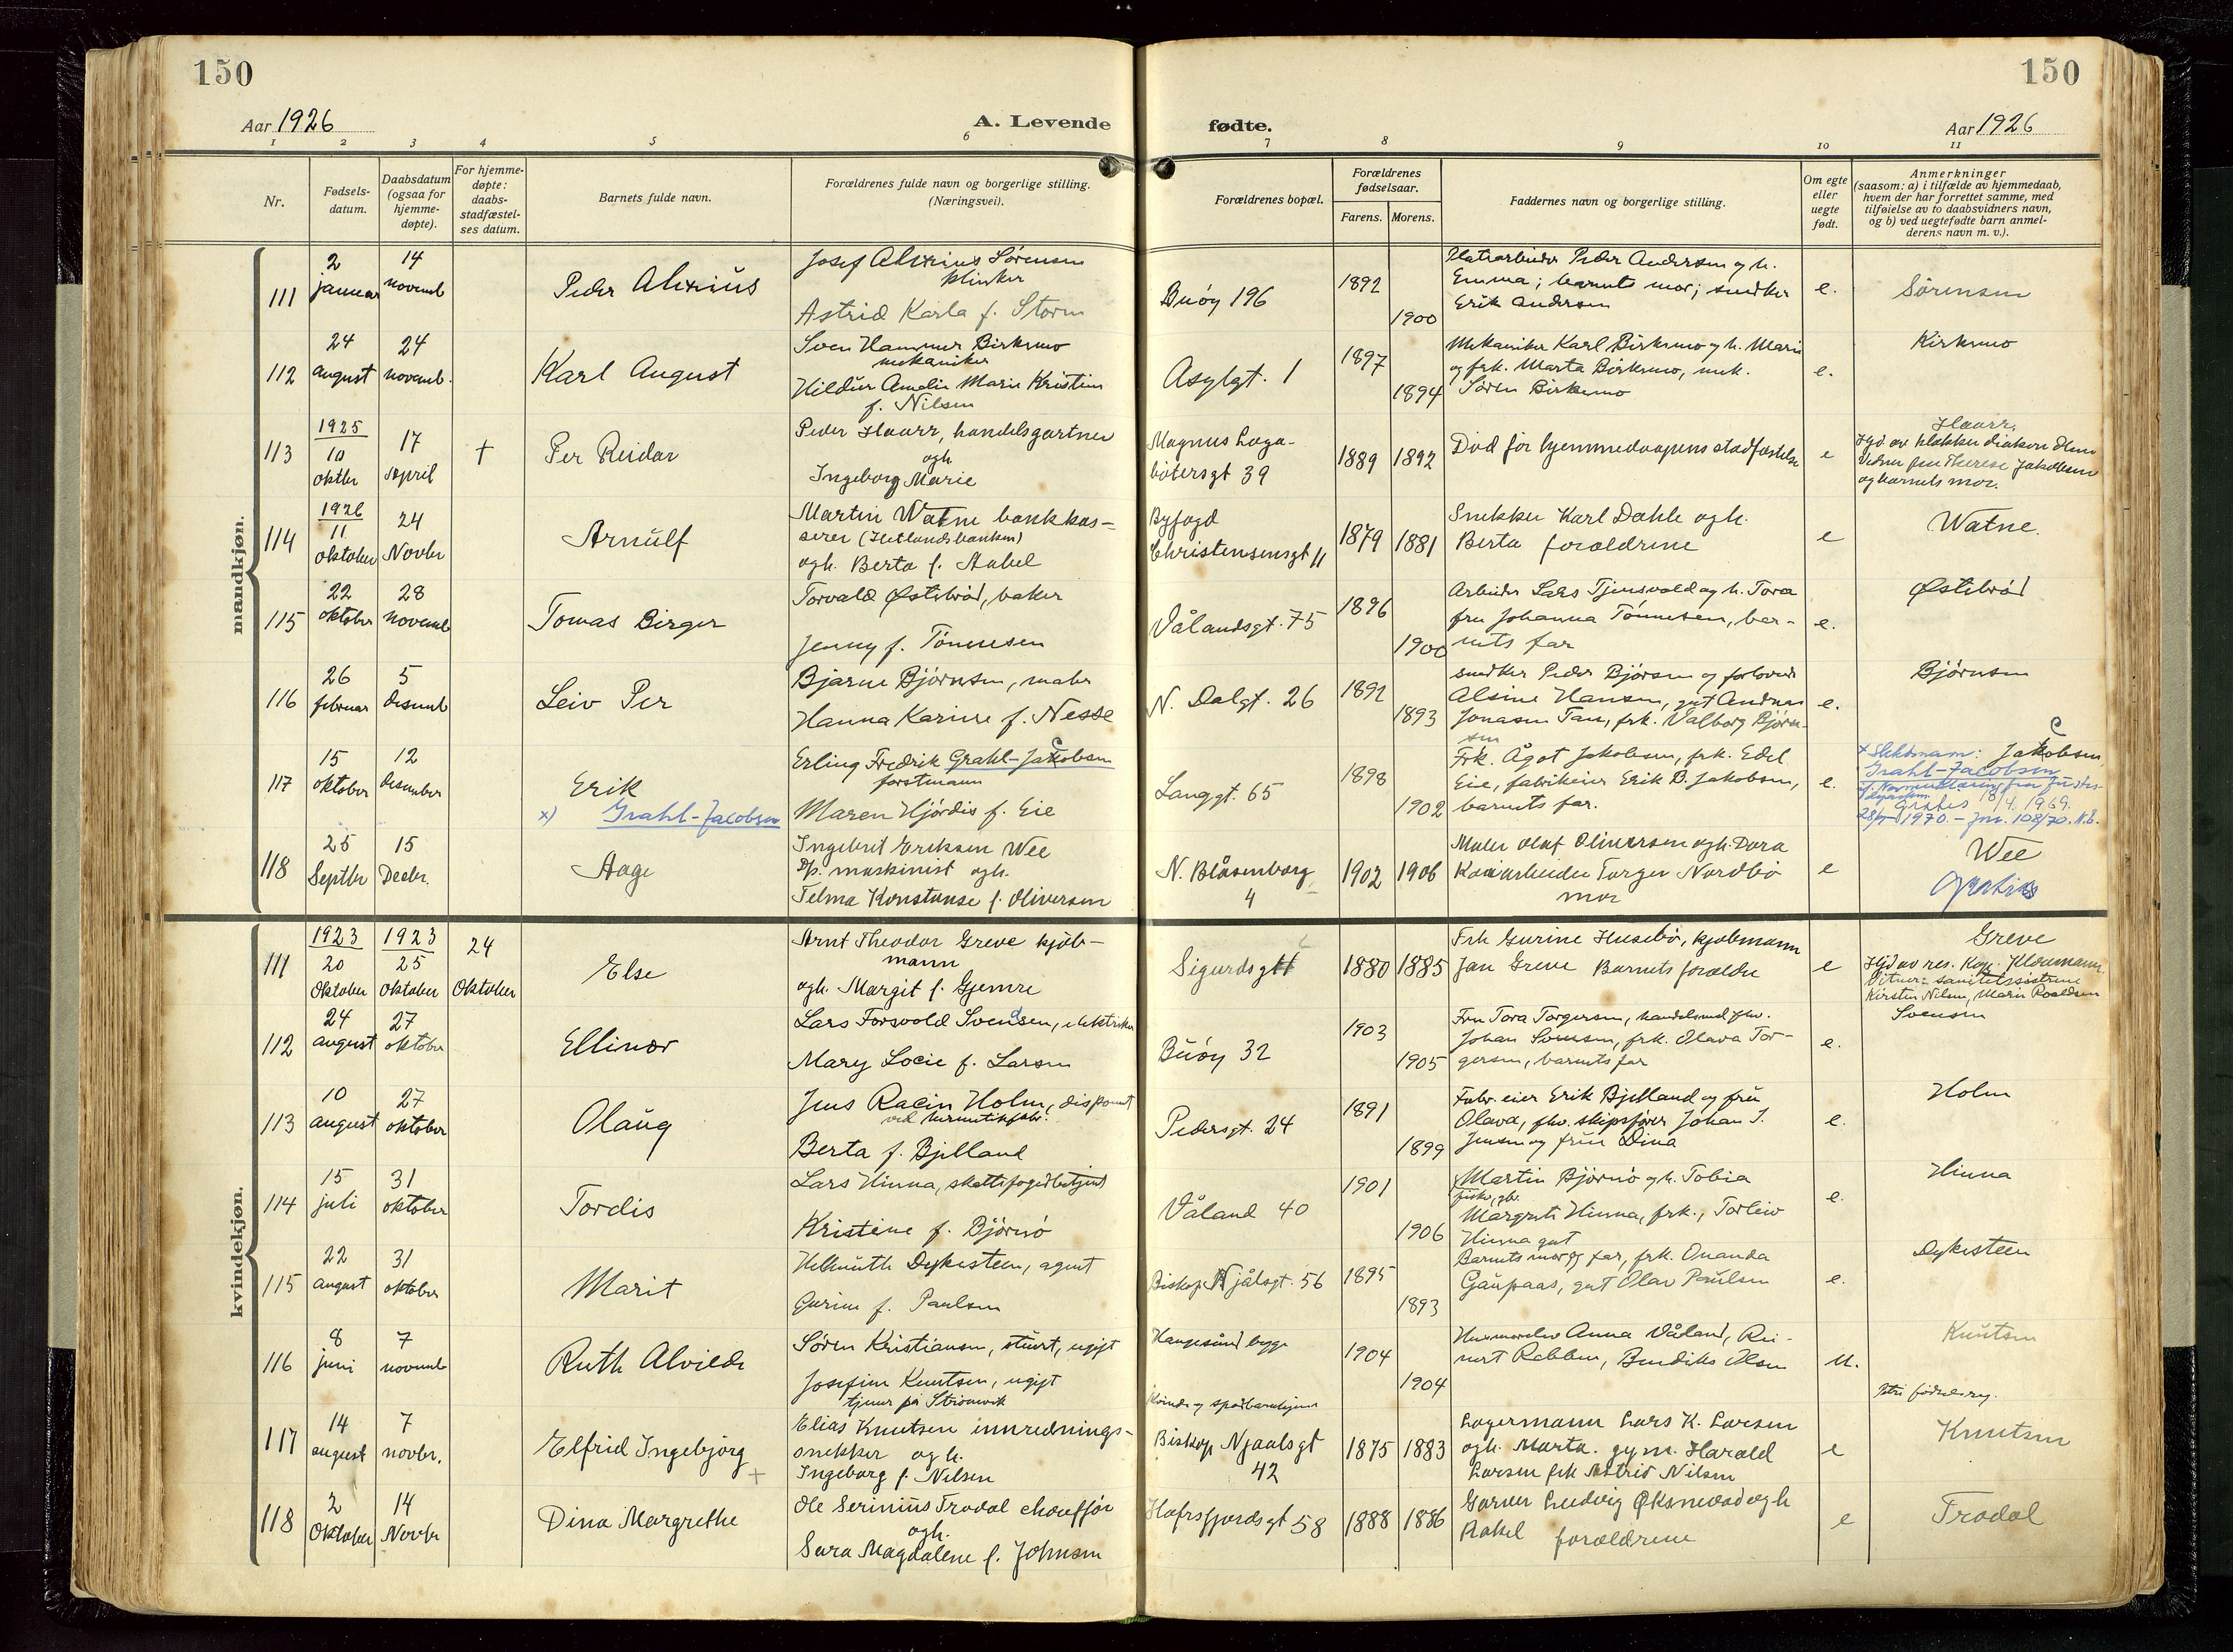 150
150
Aar 1926
A. Levende
fødte.
Aar 1926
1 2 3 4 5 6 7 8 9 10 11
Nr.
Fødsels-
datum.
Daabsdatum
(ogsaa for
hjemme-
døpte).
For hjemme-
døpte:
daabs-
stadfæstel-
ses datum.
Barnets fulde navn.
Forældrenes fulde navn og borgerlige stilling.
(Næringsvei).
Forældrenes bopæl.
Forældrenes
fødselsaar.
Farens. Morens.
Faddernes navn og borgerlige stilling.
Om egte
eller
uegte
født.
Anmerkninger
(saasom: a) i tilfælde av hjemmedaab,
hvem der har forrettet samme, med
tilføielse av to daabsvidners navn,
og b) ved uegtefødte barn anmel-
derens navn m. v.).
mandkjøn.
111
2
januar
14
novemb
Peder Alexius
Josef Alexius Sörensen
klinker
Astrid Karla f. Storm
Buöy 196
1892
1900
Peder Andersen og h.
Emma; barnets mor; snedker
Erik Andersen
e.
Sörensen
112
24
august
24
novemb.
Karl August
Sven Hammer Birkemo
mekaniker
Hildur Amalie Marie Kristine
f. Nilsen
Asylgt. 1
1897
1894
Mekaniker Karl Birkemo og h. Marie
og frk. Marta Birkemo, mek.
Sören Birkemo
e.
Kirkemo
113
1925
10
oktbr
17
april
†
Per Reidar
Peder Haarr, handelsgartner
ogh
Ingeborg Marie
Magnus Laga-
bötersgt 39
1889 1892
Död för hjemmedaapens stadfæstelse
e
Haarr.
Hjd av klokker diakon
Vidner fru Therese Jakobsen
og barnets mor.
114
1926
11
oktober
24
Novbr
Arnulf
Martin Watne bankkas-
serer (Hetlandsbanken)
ogh. Berta f. Aabel
Byfogd
Christensensgt 11
1879 1881
Snekker Karl Dahle ogh.
Berta forældrene
e
Watne.
115
22
oktober
28
novemb
Tomas Birger
Torvald Østebrød, baker
Jenny f. Tönnesen
Vålandsgt. 75
1896
1900
Arbeider Lars Tjensvold og h. Tora
fru Johanna Tönnesen, bar-
nets far
e.
Østebrød
116
26
februar
5
desemb
Leiv Per
Bjarne Björnsen, maler
Hanna Karine f. Nesse
N. Dalgt. 26
1892
1893
snedker Peder Björsen og forlovede
Alsine Hansen, gut Andreas
Jonasen Tau, frk. Valborg Björn-
sen
e.
Björnsen
117
15
oktober
12
desember
Erik
x) Grahl-Jacobsen
Erling Fredrik Grahl-Jakobsen
c
forstmann
Maren Hjördis f. Eie
Langgt. 65
1898
1902
Frk. Ågot Jakobsen, frk. Edel
Eie, fabrikeier Erik B. Jakobsen,
barnets far.
e.
c
x Slektsnavn: Jakobsen
Grahl-Jacobsen
18/4. 1969.
1970. - Jnr. 108/70. N.B.
118
25
Septbr
15
Decbr.
Aage
Ingebret Eriksen Wee
Dp. maskinist ogh.
Telma Konstanse f. Oliversen
N. Blåsenborg
4
1902 1906
Maler Olaf Oliversen ogh. Dora
Kaiarbeider Torger Nordbö
mor
e
Wee
Gratis
kvindekjøn.
111
1923
20
Oktober
1923
25
Oktober
24
Oktober
Else
Arnt Theodor Greve kjöb-
mann
ogh. Margit f. Gjemre
Sigurdsgt
1880 1885
Frk Gurine Husebö, kjöbmann
Jan Greve Barnets forældre
e
Greve
Hjd av res. Kap.
Vitner: sanitetssöstrene
Kirsten Nilsen, Marie Roaldsen
112
24
august
27
oktober
Ellinor
Lars Forsvold Svendsen, elektriker
Mary Locie f. Larsen
Buöy 32
1903
1905
Fru Tora Torgersen, handelsmed fhv.
Johan Svensen, frk. Olava Tor-
gersen, barnets far
e.
Svensen
113
10
august
27
oktober
Olaug
Jens Racin Holm, disponent
ved hermetikfabr.
Berta f. Bjelland
Pedersgt. 24
1891
1899
Fabr. eier Erik Bjelland og frue
Olava, fhv. skipsförer Johan J.
Jensen og frue Dina
e.
Holm
114
15
juli
31
oktober
Tordis
Lars Hinna, skattefogedbetjent
Kristine f. Björnö
Våland 40
1901
1906
Martin Björnö og h. Tobia
Margrete Hinna, frk., Torleiv
Hinna gut
e.
Hinna
115
22
august
31
oktober
Marit
Helmuth Dykesteen, agent
Gurine f. Paulsen
Biskop Njålsgt. 56
1895
1893
Barnets mor og far, frk. Onanda
Gaupaas, gut Olav Paulsen
e.
Dykesteen
116
8
juni
7
novemb
Ruth Alvilde
Sören Kristiansen, stuert, ugift
Josefine Knutsen, ugift
tjener på Strömvik
Haugesund bygge
1904
1904
Husmoder Anna Våland, Rei-
nert Rabben, Bendiks Olsen
u.
Knutsen
födselsreg.
117
14
august
7
novbr.
Elfrid Ingebjörg
+
Elias Knutsen innrednings-
snekker og h.
Ingeborg f. Nilsen
Biskop Njaalsgt
42
1875 1883
Lagermann Lars K. Larsen
ogh. Marta. gym. Harald
Larsen frk Astrid Nilsen
e
Knutsen
118
2
Oktober
14
Novbr
Dina Margrethe
Ole Serinius Trodal chauffför
ogh.
Sara Magdalene f. Johnsen
Hafrsfjordsgt 58
1888 1886
Garver Ludvig Øksnevad ogh
Rakel forældrene
e
Trodal